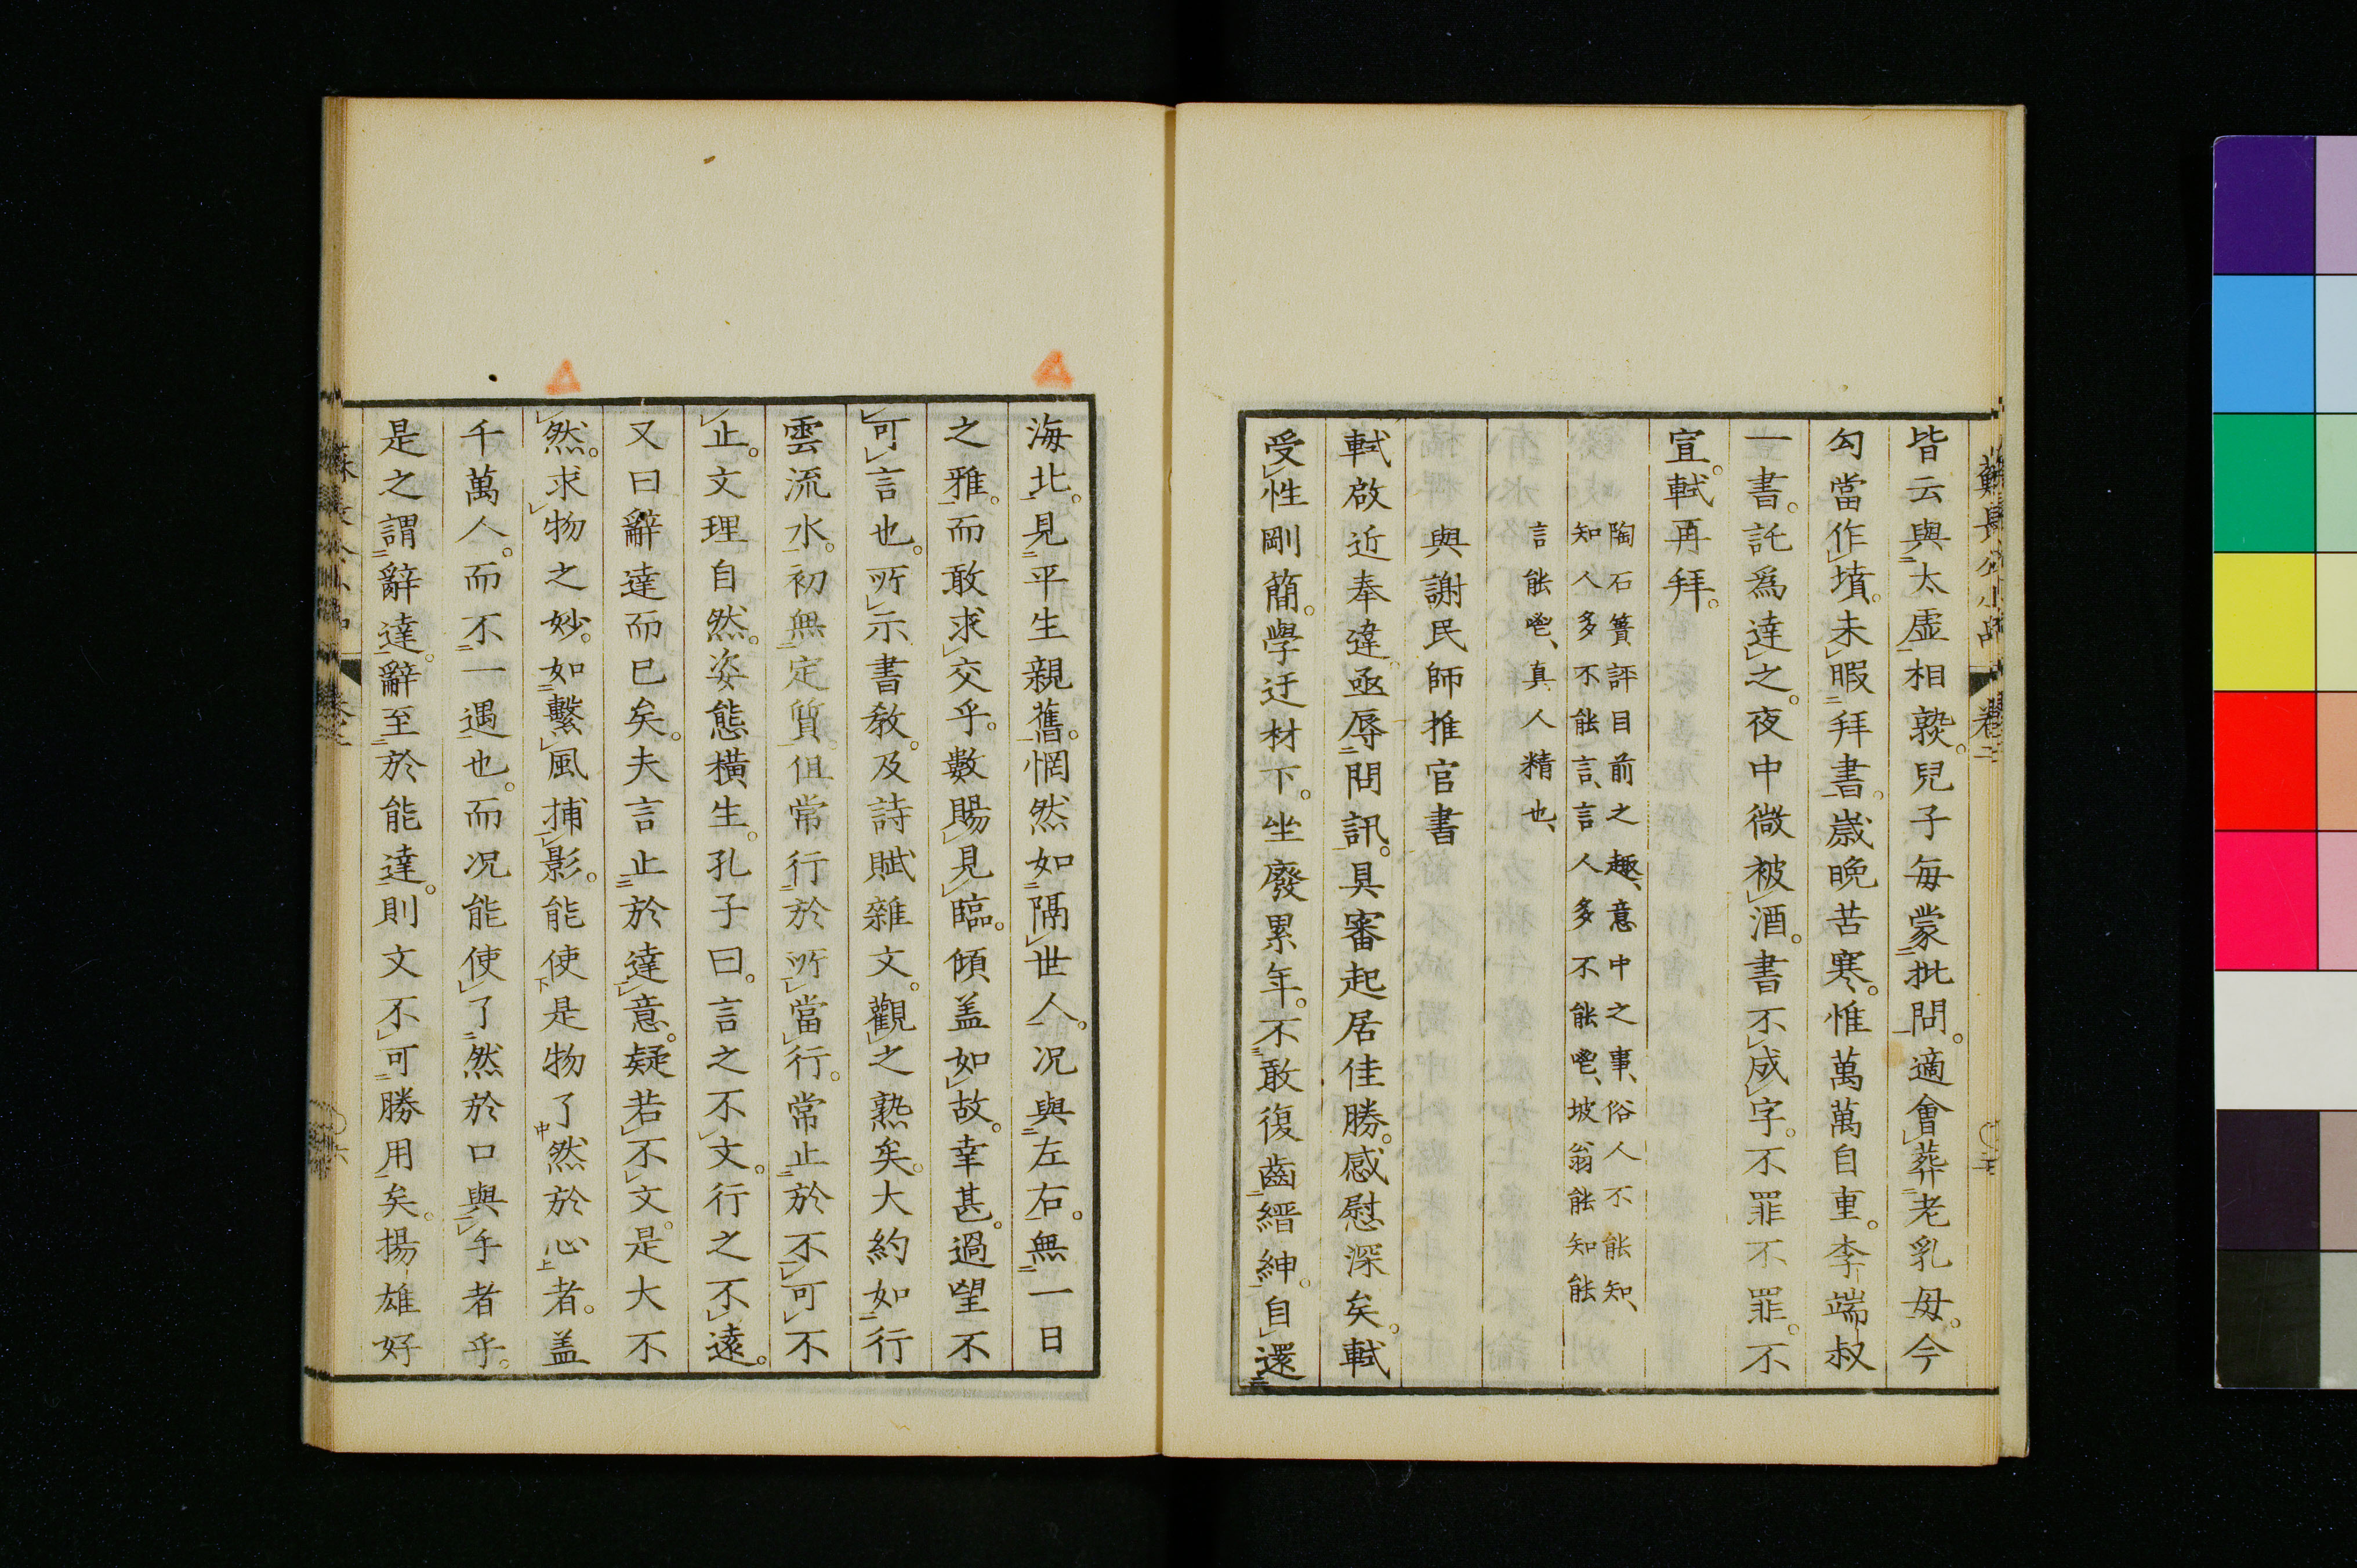 蘇長公小品 卷二
皆云與太虛相歎。兒子每蒙批問。適會葬老乳母。今
勾當作墳。未暇拜書。歲晩苦寒。惟萬萬自重。李端叔
一書。託爲達之。夜中微被酒。書不成字。不罪不罪。不
宣。軾再拜。
陶石簣評目前之趣、意中之事、俗人不能知、
知人多不能言、言人多不能鬯、坡翁能知能
言能鬯、真人精也、
與謝民師推官書
軾啟近奉違。亟辱問訊。具審起居佳勝。感慰深矣。軾
受性剛簡。學迂材下。坐廢累年。不敢復齒縉紳。自還
海北。見平生親舊。惘然如隔世人。况與左右。無一日
之雅。而敢求交乎。數賜見臨。傾盖如故。幸甚。過望不
可言也。所示書敎。及詩賦雜文。觀之熟矣。大約如行
雲流水。初無定質。但常行於所當行。常止於不可不
止。文理自然。姿態橫生。孔子曰。言之不文。行之不遠。
又曰辭達而已矣。夫言止於達意。疑若不文。是大不
然。求物之妙。如繫風捕影。能使是物了然於心者。盖
千萬人。而不一遇也。而况能使了然於口與手者乎。
是之謂辭達。辭至於能達。則文不可勝用矣。揚雄好